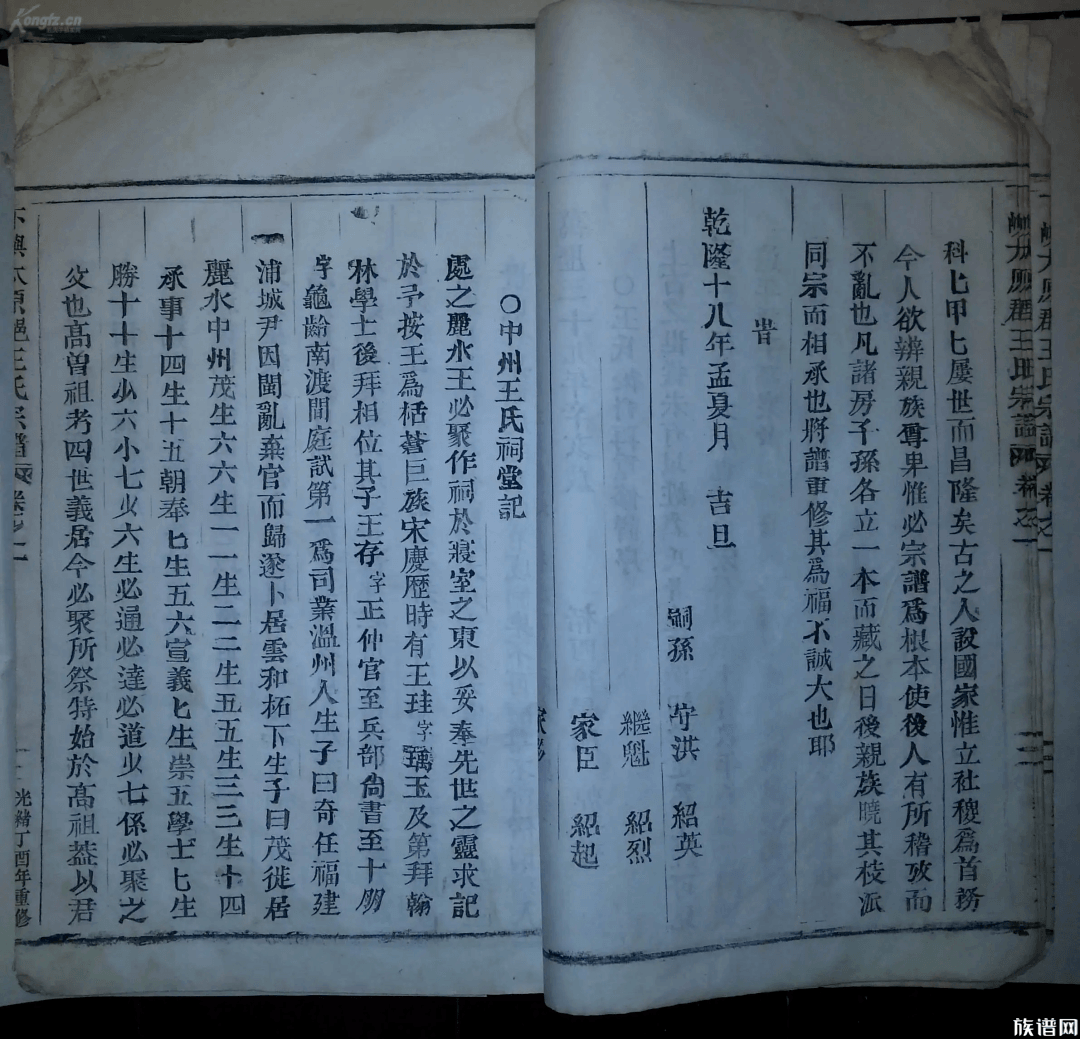 Kongfz.cn
科七甲七屡世而昌隆矣古之入設國家惟立社稷為首務
今人欲辨親族尊卑惟必宗譜為根本使後人有所稽攷而
不亂也凡諸房子孫各立一本而藏之日後親族曉其枝派
同宗而相承也將譜重修其為福不誠大也耶
旹
乾隆十八年孟夏月 吉旦
嗣孫 守洪 紹英
繼魁 紹烈
家臣 紹起
○中州王氏祠堂記
處之麗水王必聚作祠於寢室之東以妥奉先世之靈求記
於予按王為栝蒼巨族宋慶歷時有王珪字璃玉及第拜翰
林學士後拜相位其子王存字正仲官至兵部尚書至十朋
字龜齡南渡間庭試第一為司業溫州人生子曰奇任福建
浦城尹因閩亂棄官而歸遂卜居雲和柘下生子曰茂徙居
麗水中州茂生六六生一一生二二生五五生三三生十四
承事十四生十五朝奉七生五六宣義七生崇五學士七生
勝十十生少六小七少六生必通必達必道少七係必聚之
父也高曾祖考四世義居今必聚所祭特始於高祖葢以君
太原郡王氏宗譜
光緒丁酉年重修
族谱网